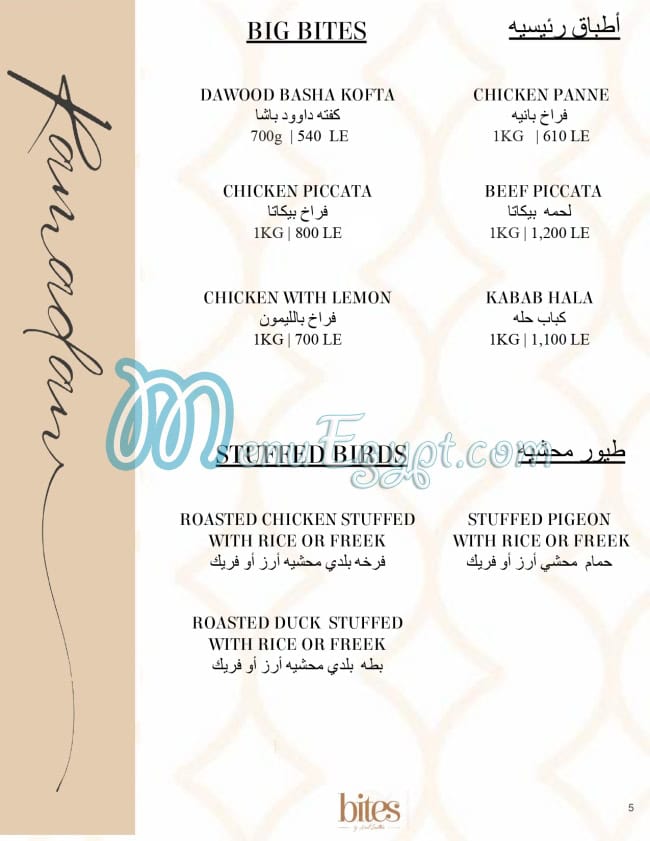 BIG BITES
أطباق رئيسيه
DAWOOD BASHA KOFTA
كفته داوود باشا
700g | 540 LE
CHICKEN PANNE
فراخ بانيه
1KG | 610 LE
CHICKEN PICCATA
فراخ بيكاتا
1KG | 800 LE
BEEF PICCATA
لحمه بيكاتا
1KG | 1,200 LE
CHICKEN WITH LEMON
فراخ بالليمون
1KG | 700 LE
KABAB HALA
كباب حله
1KG | 1,100 LE
Ramadan
MenuEgypt.com
STUFFED BIRDS
طيور محشيه
ROASTED CHICKEN STUFFED
WITH RICE OR FREEK
فرخه بلدي محشيه أرز أو فريك
STUFFED PIGEON
WITH RICE OR FREEK
حمام محشي أرز أو فريك
ROASTED DUCK STUFFED
WITH RICE OR FREEK
بطه بلدي محشيه أرز أو فريك
bites
5